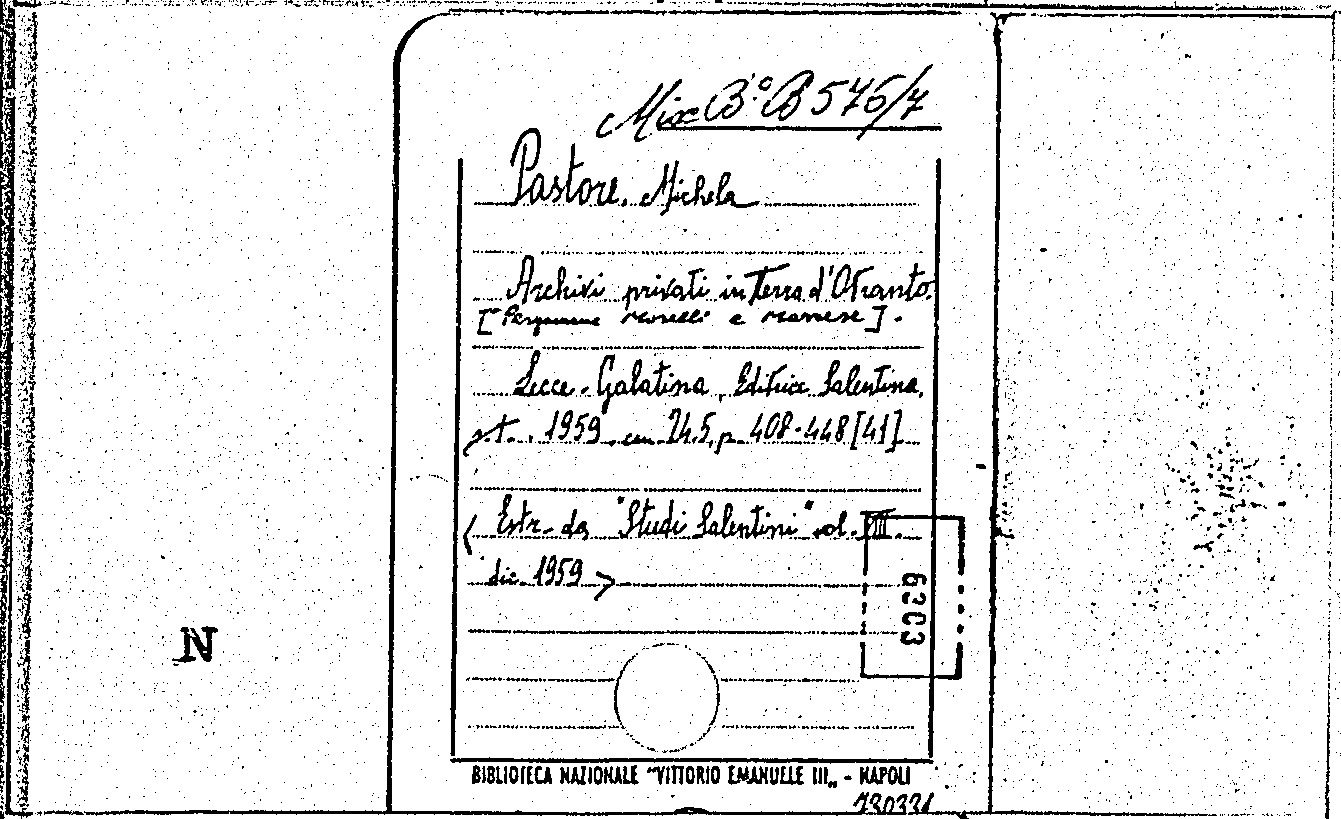 Misc B.° B 576/7
Pastore, Michela
Archivi privati in Terra d'Otranto.
[Pergamene e ].
Lecce - Galatina, Editrice Salentina,
st., 1959, cm 24.5, p. 408-448 [41]
< Estr. da "Studi Salentini" vol. VIII.
dic. 1959 >
6303
N
BIBLIOTECA NAZIONALE "VITTORIO EMANUELE III„ - NAPOLI
730331